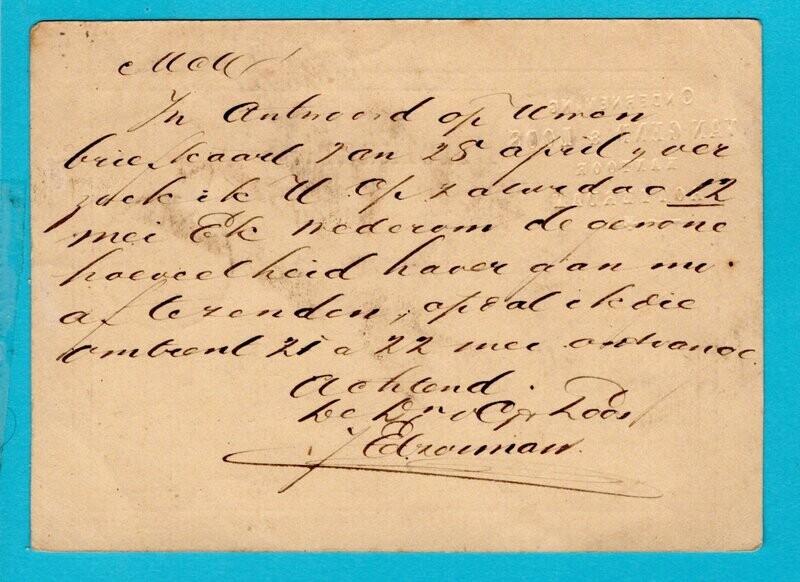 MdH
In Antwoord op Uwen
briefkaart van 25 april, ver
zoek ik U Op zaturdag 12
mei Ek wederom de gewone
hoeveelheid haver aan mij
af te zenden, opdat ik die
omtrent 21 a 22 mei ontvange.
Achtend
De Dr v G & Loos
ONDERNEMING
VAN GEND & LOOS
KANTOOR